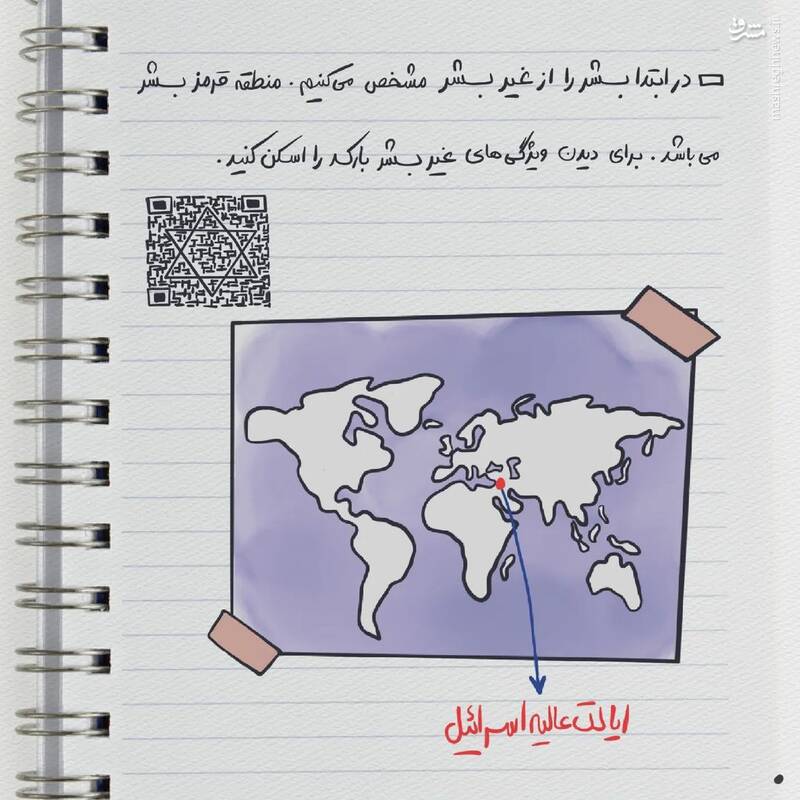 در ابتدا بشر را از غیر بشر مشخص می‌کنیم. منطقه قرمز بشر
می باشد. برای دیدن ویژگی‌های غیر بشر بارکد را اسکن کنید.
ایالت عالیه اسرائیل
مشرق
mashreghnews.ir